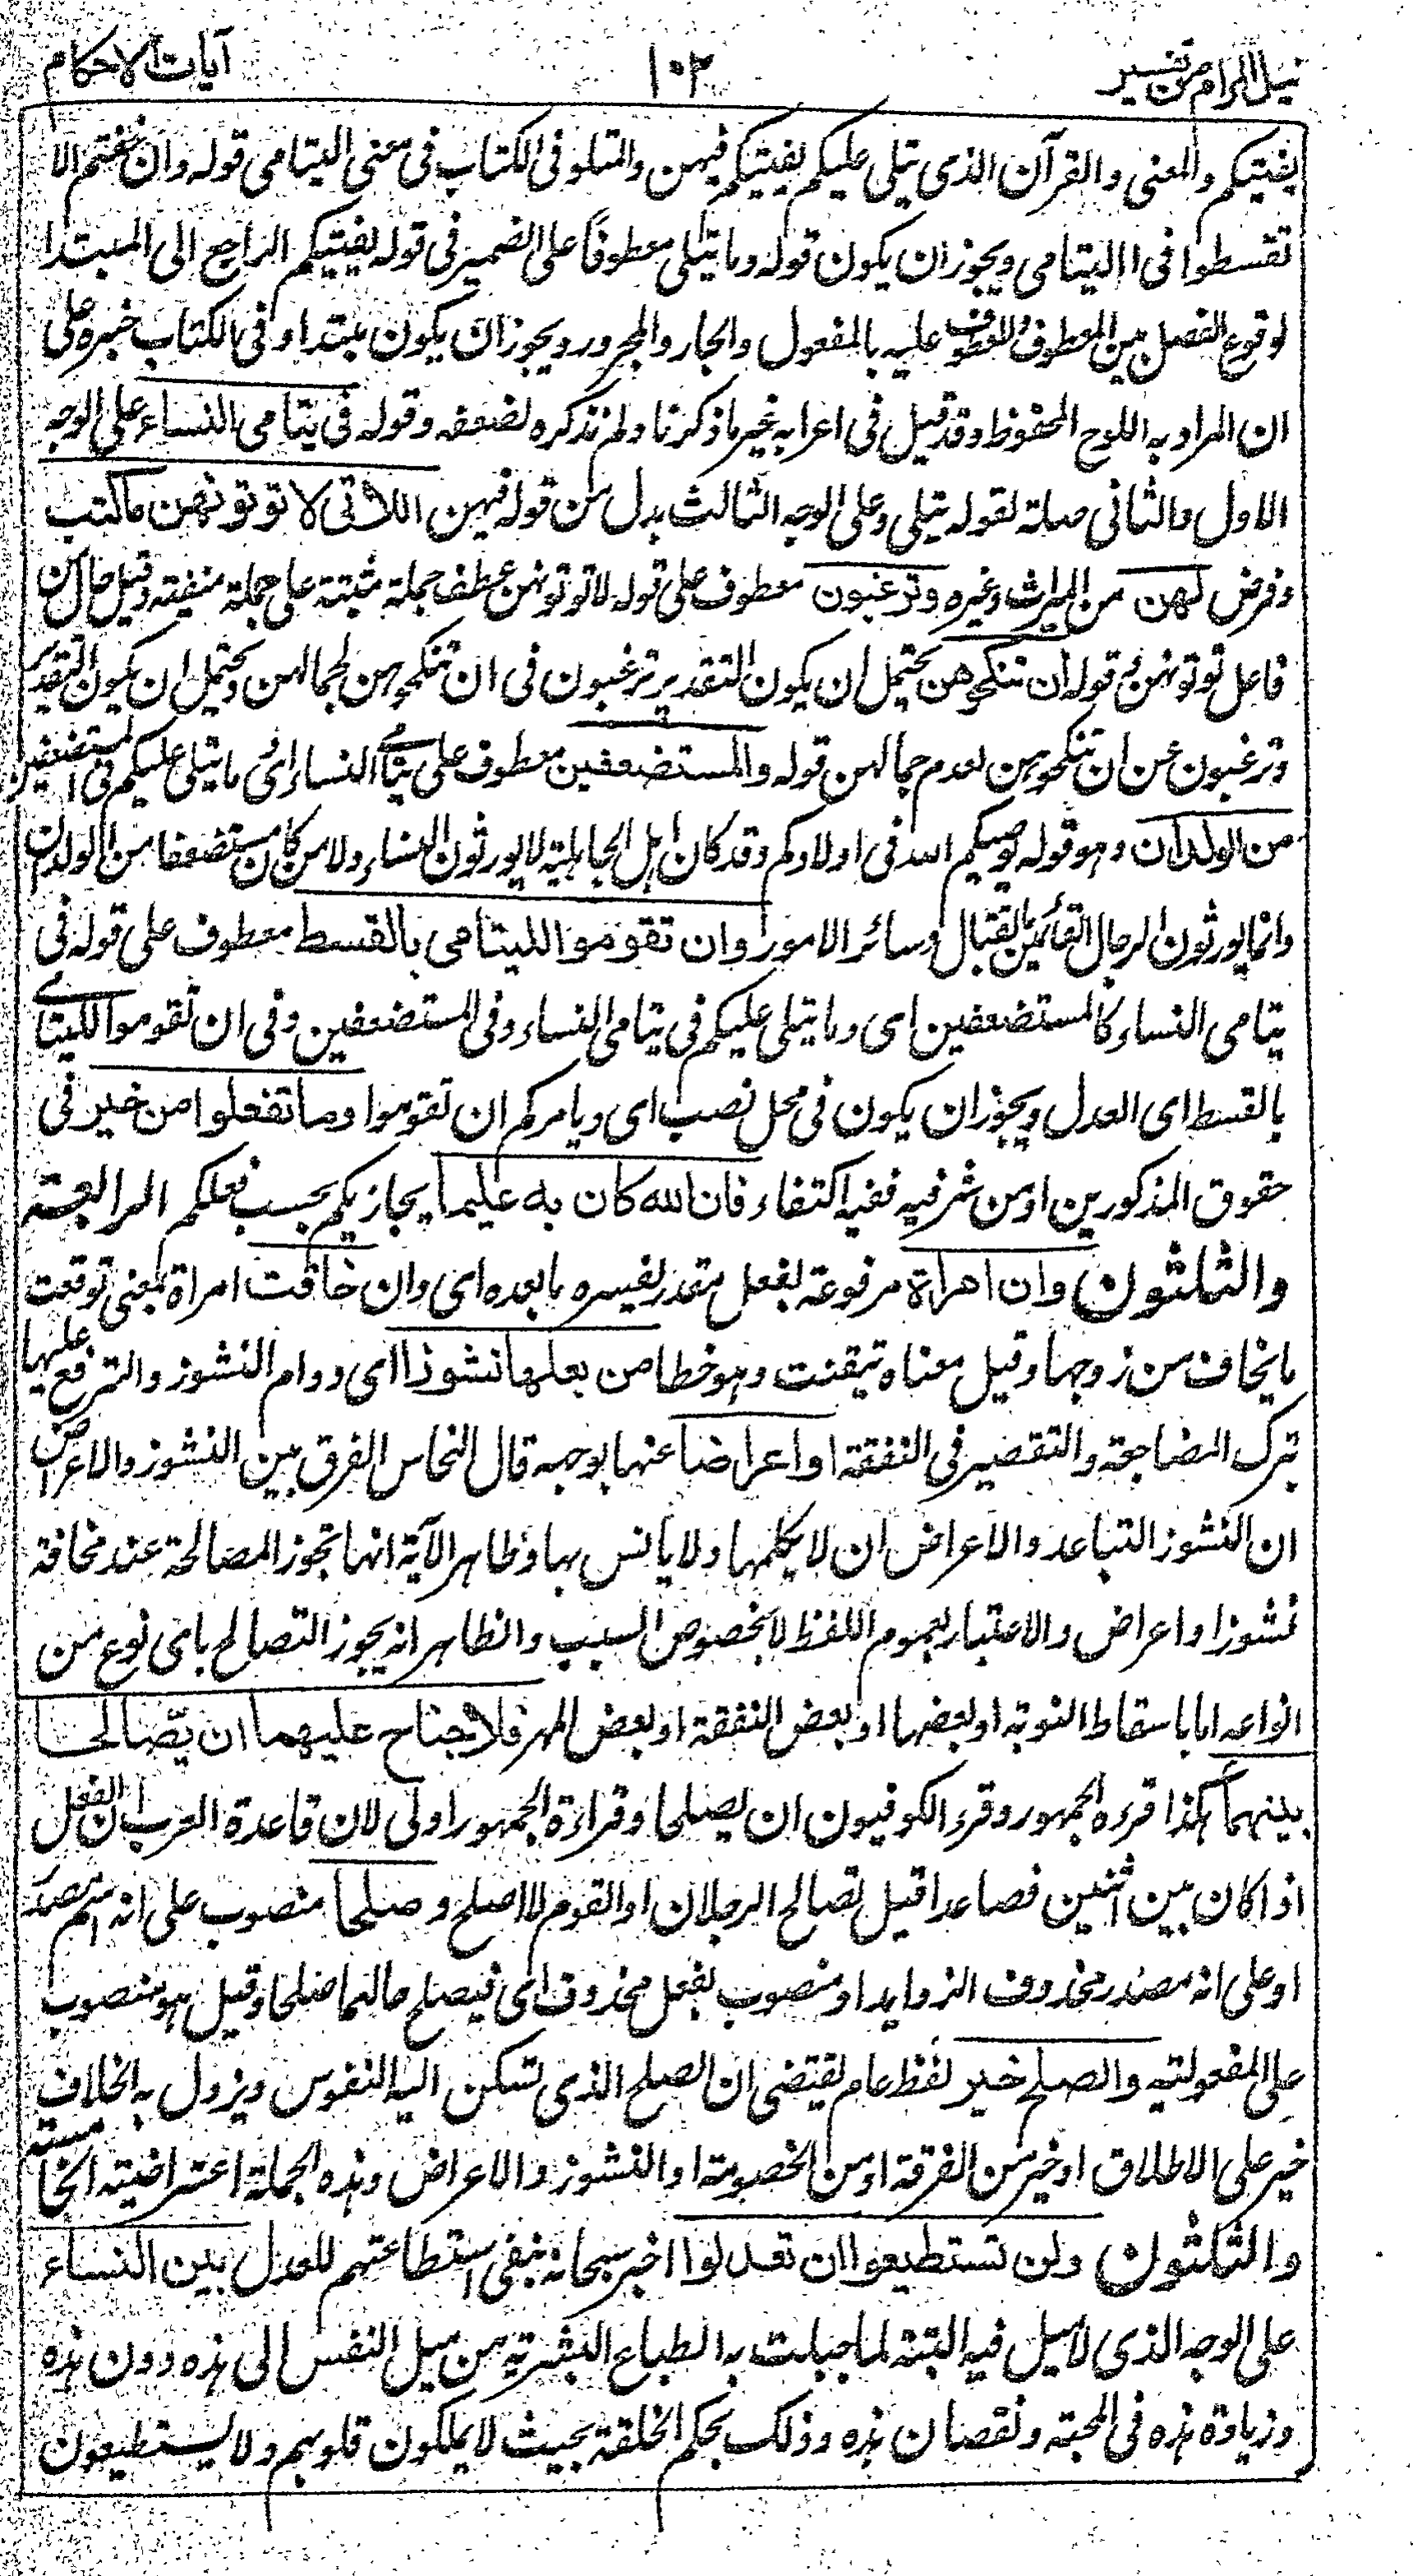 نيل المرام من تفسير
١٠٢
آيات الاحكام
يفتيكم والمعنى والقرآن الذى يتلى عليكم يفتيكم فيهن والمتلو فى الكتاب فى معنى اليتامى قوله وان خفتم الا
تقسطوا فى االيتامى ويجوز ان يكون قوله وما يتلى معطوفا على الضمير فى قوله يفتيكم الراجع الى المبتدا
لوقوع الفصل بين المعطوف والمعطوف عليه بالمفعول والجار والمجرور ويجوز ان يكون مبتدا وفى الكتاب خبره على
ان المراد به اللوح المحفوظ وقد قيل فى اعرابه غير ما ذكرنا ولم نذكره لضعفه وقوله فى يتامى النساء على الوجه
الاول والثانى صلة لقوله يتلى وعلى الوجه الثالث بدل من قوله فيهن اللاتى لا توتونهن ماكتب
وفرض لهن من الميراث وغيره وترغبون معطوف على قوله لا توتونهن عطف جملة مثبتة على جملة منفية وقيل حال من
فاعل توتونهن و قوله ان تنكحوهن يحتمل ان يكون التقدير ترغبون فى ان تنكحوهن لجمالهن ويحتمل ان يكون التقدير
وترغبون عن ان تنكحوهن لعدم جمالهن قوله والمستضعفين معطوف على يتامى النساء اى ما يتلى عليكم فى المستضعفين
من الولدان وهو قوله يوصيكم الله فى اولادكم وقد كان اهل الجاهلية لا يورثون النساء ولا من كان مستضعفا من الولدان
وانما يورثون الرجال القائمين بالقتال وسائر الامور وان تقوموا لليتامى بالقسط معطوف على قوله فى
يتامى النساء كالمستضعفين اى وما يتلى عليكم فى يتامى النساء وفى المستضعفين وفى ان تقوموا لليتامى
بالقسط اى العدل ويجوز ان يكون فى محل نصب اى ويامركم ان تقوموا وما تفعلوا من خير فى
حقوق المذكورين او من شر فيه ففيه اكتفاء فان الله كان به عليما يجازيكم بحسب فعلكم الرابعة
والثلثون وان امراة مرفوعة بفعل مقدر يفسره ما بعده اى وان خافت امراة بمعنى توقعت
ما يخاف من زوجها وقيل معناه تيقنت وهو خطا من بعلها نشوزا اى دوام النشوز والترفع عليها
بترك المضاجعة والتقصير فى النفقة او اعراضا عنها بوجهه قال النحاس الفرق بين النشوز والاعراض
ان النشوز التباعد والاعراض ان لا يكلمها ولا يانس بها وظاهر الآية انها تجوز المصالحة عند مخافة
نشوز او اعراض والاعتبار بعموم اللفظ لا بخصوص السبب والظاهر انه يجوز التصالح باى نوع من
انواعه اما باسقاط النوبة او بعضها او بعض النفقة او بعض المهر فلا جناح عليهما ان يصّالحا
بينهما هكذا قرءه الجمهور وقرء الكوفيون ان يصلحا وقراءة الجمهور اولى لان قاعدة العرب ان الفعل
اذا كان بين اثنين فصاعدا قيل تصالح الرجلان او القوم لا اصلح و صلحا منصوب على انه اسم مصدر
او على انه مصدر محذوف الزوايد او منصوب بفعل محذوف اى فيصلح حالهما صلحا وقيل هو منصوب
على المفعولية والصلح خير لفظ عام يقتضى ان الصلح الذى تسكن اليه النفوس ويزول به الخلاف
خير على الاطلاق او خير من الفرقة او من الخصومة او النشوز والاعراض وهذه الجملة اعتراضية الخامسة
والثلثون ولن تستطيعوا ان تعدلوا اخبر سبحانه بنفى استطاعتهم للعدل بين النساء
على الوجه الذى لا ميل فيه البتة لما جبلت به الطباع البشرية من ميل النفس الى هذه دون هذه
وزيادة هذه فى المحبة ونقصان هذه وذلك بحكم الخلقة بحيث لا يملكون قلوبهم ولا يستطيعون